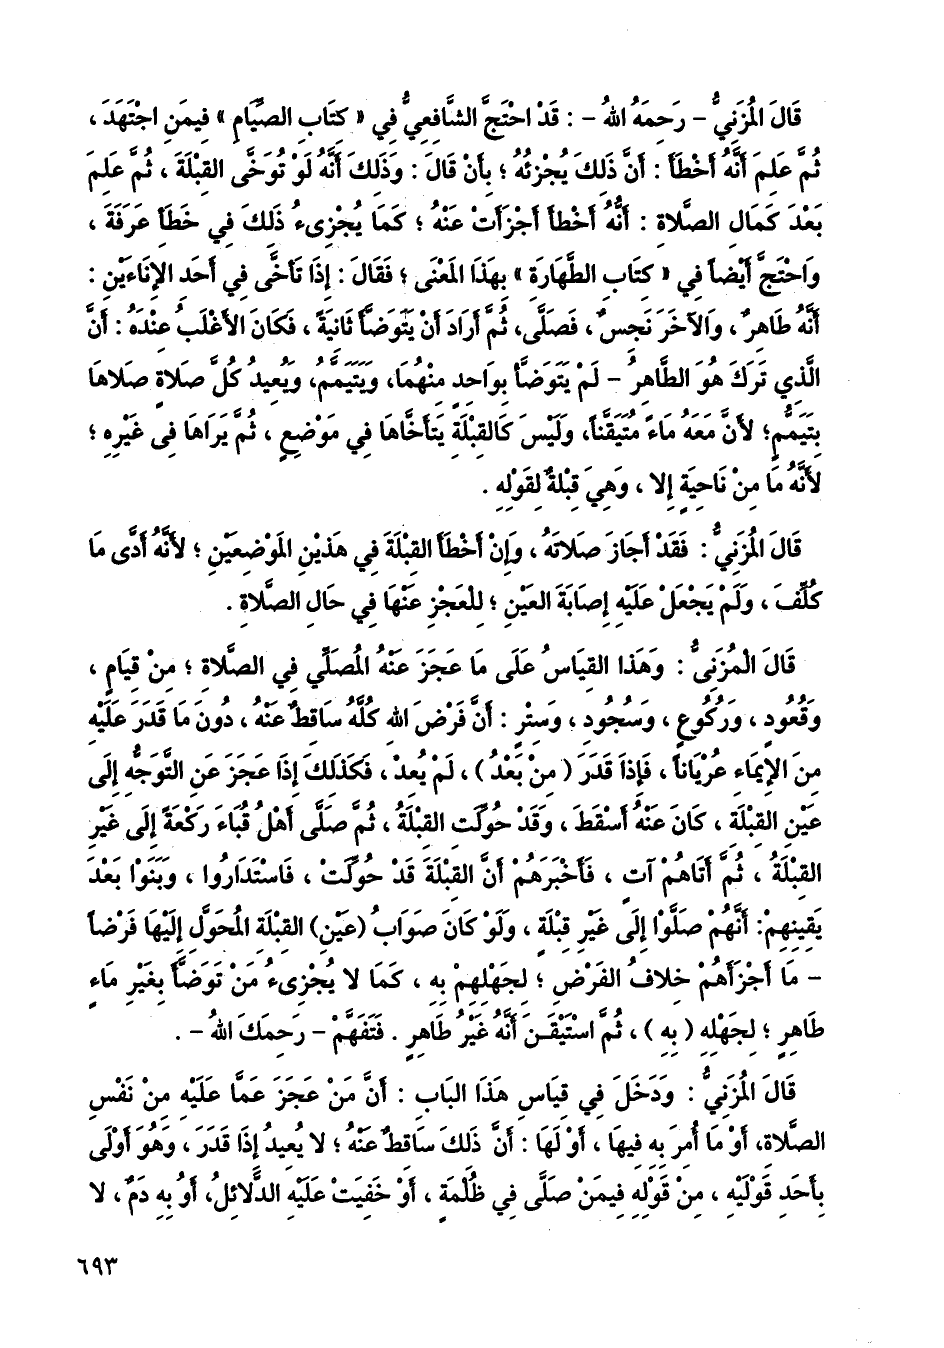 قَالَ الْمُزَنِيُّ – رَحِمَهُ اللهُ – : قَدْ احْتَجَّ الشَّافِعِيُّ فِي « كِتَابِ الصِّيَامِ » فِيمَنِ اجْتَهَدَ ،
ثُمَّ عَلِمَ أَنَّهُ أَخْطَأَ : أَنَّ ذَلِكَ يُجْزِئُهُ ؛ بِأَنْ قَالَ : وَذَلِكَ أَنَّهُ لَوْ تُوَخَّى القِبْلَةَ ، ثُمَّ عَلِمَ
بَعْدَ كَمَالِ الصَّلَاةِ : أَنَّهُ أَخْطَأَ أَجْزَأَتْ عَنْهُ ؛ كَمَا يُجْزِىءُ ذَلِكَ فِي خَطَأِ عَرَفَةَ ،
وَاحْتَجَّ أَيْضاً فِي « كِتَابِ الطَّهَارَةِ » بِهَذَا المَعْنَى ؛ فَقَالَ : إِذَا تَأَخَّى فِي أَحَدِ الإِنَاءَيْنِ :
أَنَّهُ طَاهِرٌ ، وَالآخَرَ نَجِسٌ ، فَصَلَّى، ثُمَّ أَرَادَ أَنْ يَتَوَضَّأَ ثَانِيَةً ، فَكَانَ الأَغْلَبُ عِنْدَهُ : أَنَّ
الَّذِي تَرَكَ هُوَ الطَّاهِرُ – لَمْ يَتَوَضَّأْ بِوَاحِدٍ مِنْهُمَا، وَيَتَيَمَّمُ، وَيُعِيدُ كُلَّ صَلَاةٍ صَلَاهَا
بِتَيَمُّمٍ؛ لأَنَّ مَعَهُ مَاءً مُتَيَقَّناً، وَلَيْسَ كَالقِبْلَةِ يَتَأَخَّاهَا فِي مَوْضِعٍ ، ثُمَّ يَرَاهَا فِى غَيْرِهِ ؛
لأَنَّهُ مَا مِنْ نَاحِيَةٍ إِلا ، وَهِيَ قِبْلَةٌ لِقَوْلِهِ .
قَالَ الْمُزَنِيُّ : فَقَدْ أَجَازَ صَلَاتَهُ ، وَإِنْ أَخْطَأَ القِبْلَةَ فِي هَذَيْنِ المَوْضِعَيْنِ ؛ لأَنَّهُ أَدَّى مَا
كُلِّفَ ، وَلَمْ يَجْعَلْ عَلَيْهِ إِصَابَةَ العَيْنِ ؛ لِلْعَجْزِ عَنْهَا فِي حَالِ الصَّلَاةِ .
قَالَ الْمُزَنِىُّ : وَهَذَا القِيَاسُ عَلَى مَا عَجَزَ عَنْهُ المُصَلِّي فِي الصَّلَاةِ ؛ مِنْ قِيَامٍ ،
وَقُعُودٍ ، وَرُكُوعٍ ، وَسُجُودٍ ، وَسَتْرٍ : أَنَّ فَرْضَ اللهِ كُلَّهُ سَاقِطٌ عَنْهُ ، دُونَ مَا قَدَرَ عَلَيْهِ
مِنَ الإِيمَاءِ عُرْيَاناً ، فَإِذَا قَدَرَ ( مِنْ بَعْدُ ) ، لَمْ يُعِدْ ، فَكَذَلِكَ إِذَا عَجَزَ عَنِ التَّوَجُّهِ إِلَى
عَيْنِ القِبْلَةِ ، كَانَ عَنْهُ أَسْقَطَ ، وَقَدْ حُوِّلَتِ القِبْلَةُ ، ثُمَّ صَلَّى أَهْلُ قُبَاءَ رَكْعَةً إِلَى غَيْرِ
القِبْلَةِ ، ثُمَّ أَتَاهُمْ آتٍ ، فَأَخْبَرَهُمْ أَنَّ القِبْلَةَ قَدْ حُوِّلَتْ ، فَاسْتَدَارُوا ، وَبَنَوْا بَعْدَ
يَقِينِهِمْ: أَنَّهُمْ صَلَّوْا إِلَى غَيْرِ قِبْلَةٍ ، وَلَوْ كَانَ صَوَابُ (عَيْنِ) القِبْلَةِ المُحَوَّلِ إِلَيْهَا فَرْضاً
– مَا أَجْزَأَهُمْ خِلَافُ الفَرْضِ ؛ لِجَهْلِهِمْ بِهِ ، كَمَا لا يُجْزِىءُ مَنْ تَوَضَّأَ بِغَيْرِ مَاءٍ
طَاهِرٍ ؛ لِجَهْلِهِ ( بِهِ ) ، ثُمَّ اسْتَيْقَنَ أَنَّهُ غَيْرُ طَاهِرٍ . فَتَفَهَّمْ – رَحِمَكَ اللهُ – .
قَالَ الْمُزَنِيُّ : وَدَخَلَ فِي قِيَاسِ هَذَا البَابِ : أَنَّ مَنْ عَجَزَ عَمَّا عَلَيْهِ مِنْ نَفْسِ
الصَّلَاةِ، أَوْ مَا أُمِرَ بِهِ فِيهَا ، أَوْ لَهَا : أَنَّ ذَلِكَ سَاقِطٌ عَنْهُ ؛ لا يُعِيدُ إِذَا قَدَرَ ، وَهُوَ أَوْلَى
بِأَحَدِ قَوْلَيْهِ ، مِنْ قَوْلِهِ فِيمَنْ صَلَّى فِي ظُلْمَةٍ ، أَوْ خَفِيَتْ عَلَيْهِ الدَّلائِلُ، أَوْ بِهِ دَمٌ ، لا
٦٩٣